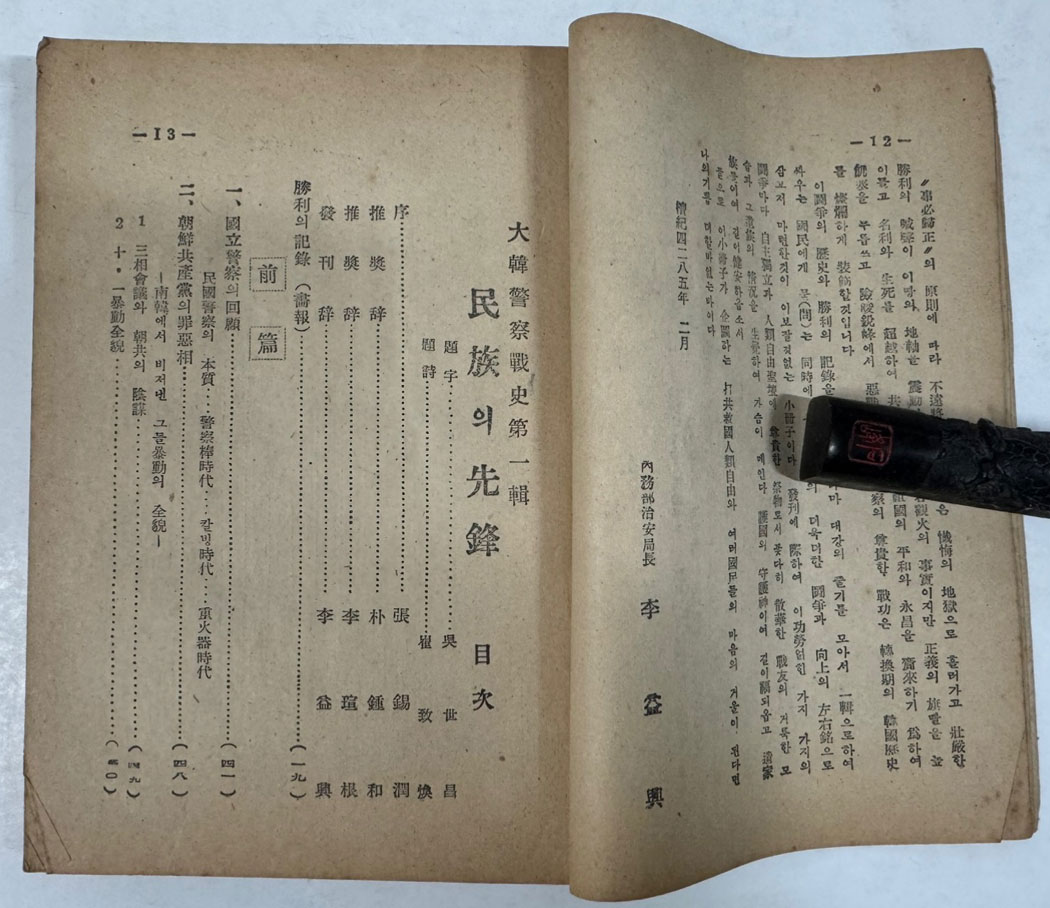 —12—
〃事必歸正〃의 原則에 따라 不遠將
懺悔의 地獄으로 흘러가고 壯嚴한
勝利의 喊聲이 이땅와 地軸을 震動
觀火의 事實이지만 正義의 旗빨을 높
이들고 名利와 生死를 超越하여 共
祖國의 平和와 永昌을 齎來하기 爲하여
무릅쓰고 險峻銳峰에서 惡戰
警察의 尊貴한 戰功은 轉換期의 韓國歷史
를 燦爛하게 裝飾할것입니다
이鬪爭의 歷史와 勝利의 記錄을
마 대강의 줄기를 모아서 一輯으로하여
싸우는 國民에게 묻(問)는 同時에
의 더욱더한 鬪爭과 向上의 左右銘으로
삼고저 마련한것이 이보잘것없는 小冊子이다 發刊에 際하여 이功勞얽힌 가지 가지의
鬪爭마다 自主獨立과 人類自由聖壇에 尊貴한 祭物로서 꽃다히 散華한 戰友의 거룩한 모
습과 그 遺族의 情況을 生覺하여 가슴이 메인다 護國의 守護神이여 길이福되옵고 遺家
族들이여 길이健安하옵소서
끝으로 이小冊子가 企圖하는 打共救國人類自由와 여러國民들의 마음의 거울이 된다면
나의기쁨 더할바없는바이다
檀紀四二八五年 二月
內務部治安局長 李益興
—13—
大韓警察戰史第一輯
民族의先鋒 目次
題字 吳世昌
題詩 崔致煥
序 張錫潤
推奬辞 朴鍾和
推奬辞 李瑄根
發刊辞 李益興
勝利의記錄(畵報) (一九)
前篇
一、國立警察의回顧 (四一)
民國警察의 本質 警察棒時代 칼빙時代 重火器時代
二、朝鮮共產黨의罪惡相 (四八)
—南韓에서 비저낸 그들暴動의 全貌—
1 三相會議와 朝共의 陰謀 (四九)
2 十·一暴動全貌 (五〇)